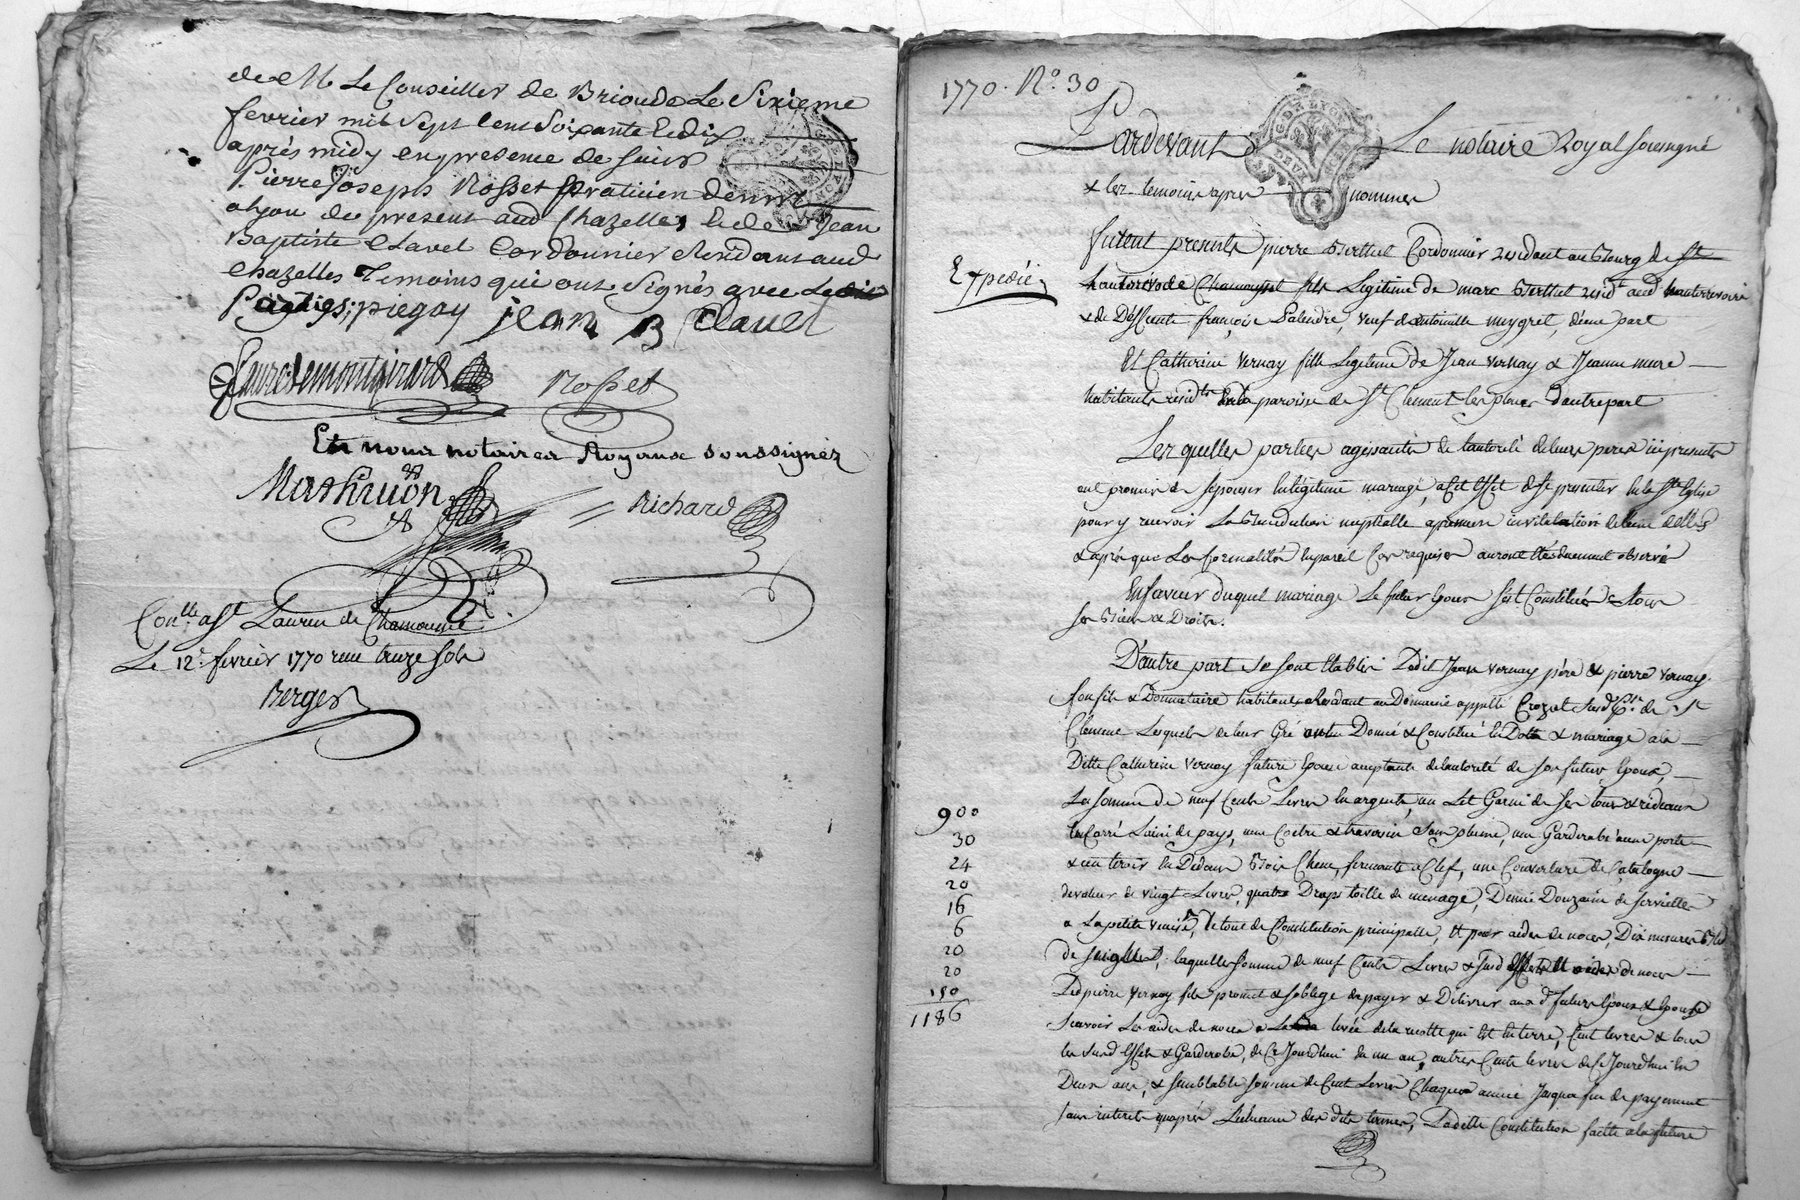 de M Le Conseiller de Brioude Le Sixieme
fevrier mil Sept Cent Soixante Et dix
après midy en presence de Sieur
Pierre Joseph Rosset praticien demeurt
a Lyon de present aud Chazelles Et de Jean
Baptiste Clavel Cordonnier Residant aud
Chazelles Temoins qui ont Signés avec
piegay jean B Clavel
fauredemontgirard Rosset
Et nous notaires Royaux soussignez
Mathevon Richard
Con.lle a St Laurent de Chamousset
Le 12.e fevrier 1770 reçu treize sols
Berger
1770. No. 30
Pardevant Le notaire Royal soussigné
& les temoins apres nommes
Expedié
furent presents pierre Berthet Cordonnier residant au Bourg de St
hauterivoire fils Legitime de marc Berthet resid.t aud hauterivoire
& de Deffunte françoise veuf d'antoinette d'une part
Et Catherine Vernay fille Legitime de Jean Vernay & Jeanne mure
habitants resid.ts en la paroisse de St Clement les places d'autre part
Lesquelles parties agissantes de L'autorité de leurs peres icy presents
ont promis de s'epouser en legitime mariage, a cet effet de se presenter en la Ste Eglise
pour y recevoir La Benediction nuptialle a premiere invitation de l'une d'elles
& après que Les formalités en pareil Cas requises auront été duement observé
En faveur duquel mariage Le futur Epoux s'est Constitués tous
ses Biens & Droits.
D'autre part se sont Etablis Ledit Jean Vernay père & pierre Vernay
son fils & Donnataire habitans & Residant au Domaine appellé Crozet susd. p.sse de St
Clement Lesquels de leur Gré ont Donné & Constitué En Dotte & mariage a la
Ditte Catherine Vernay future Epouse acceptante de L'autorité de son futur Epoux,
900 La somme de neuf Cents Livres en argent, un Lit Garni de ses tours & rideaux
30 en Carré Laine de pays, une Coetre & traversin sans plume, une Garderobe a une porte
24 & un tiroir en Dedans Bois Chene, fermante a Clef, une Couverture de Catalogne
20 de valeur de vingt Livres, quatre Draps toille de menage, Demie Douzaine de serviettes
16 a La petite venise, Le tout de Constitution principalle, Et pour aides de noces, Dix mesures Bled
6
20 de seigle, laquelle somme de neuf Cents Livres & susd effets & aides de noces
20
150 Led pierre Vernay fils promet & s'oblige de payer & Delivrer aux d. futurs Epoux & Epouse
1186 scavoir Les aides de noces a levée de la recolte qui est en terre, Cent livres & tous
les susd effets & Garderobe, de Ce Jourdhui en un an, autres Cents livres de Ce Jourdhui en
Deux ans, & semblable somme de Cent Livres Chaque année Jusqu'a fin de payement
sans interets qu'après L'echeance des dits termes, Ladette Constitution faitte a la future